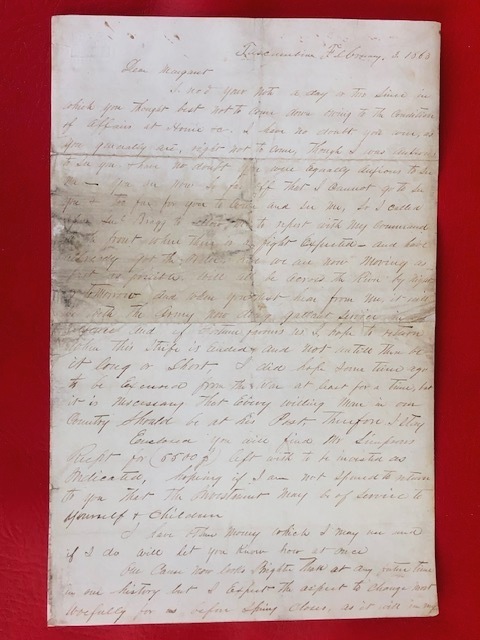 Tuscumbia February 3 1863
Dear Margaret
I rec'd your note a day or two since in
which you thought best not to come down owing to the condition
of affairs at Home &c. I have no doubt you were, as
you generally are, right not to come, though I was anxious
to see you & have no doubt you were equally anxious to see
me — You are now so far off that I cannot go to see
you & too far for you to come and see me, So I called
Genl Bragg to to report with my command
front when there is a fight expected — and have
already got the order. We are now moving as
fast as possible will all be across the River by night
tomorrow and when you next hear from me, it will
be with the Army now doing gallant service in
and if Fortune favours us I hope to return
when this strife is ended & not untill then be
it long or short. I did hope some time ago
to be Excused from this War at least for a time, but
it is necessary that Every willing Man in our
Country Should be at his Post, therefore I stay
Enclosed you will find Mr Simpsons
Recpt for (5500\$) left with to be invested as
indicated, hoping if I am not Spared to return
to you that the investment may be of service to
yourself & Children
I have other Money which I may use and
if I do will let you know how at once
Our Cause now looks Brighter than at any time
in our history but I Expect the aspect to change most
woefully for us before Spring closes, as it will in my